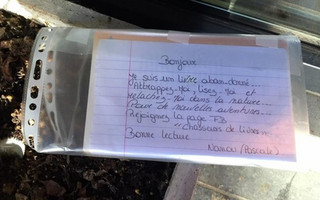 Bonjour
Je suis un livre abandonné
"Attrappez-Moi, Lisez-Moi et
relâchez-Moi dans la nature...
Pour de nouvelles aventures...
(Rejoignez la page FB
"chasseurs de livres"...
Bonne lecture
Nanou (Pascale)